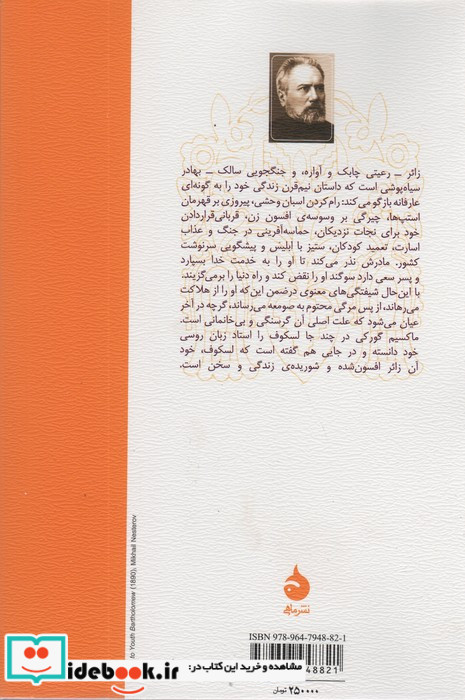 زائر ــ رعیتی چابک و آواره، و جنگجویی سالک ــ بهادر
سیاه‌پوشی است که داستان نیم‌قرن زندگی خود را به گونه‌ای
عارفانه بازگو می‌کند: رام کردن اسبان وحشی، پیروزی بر قهرمان
استپ‌ها، چیرگی بر وسوسه‌ی افسون زن، قربانی‌قراردادن
خود برای نجات نزدیکان، حماسه‌آفرینی در جنگ و عذاب
اسارت، تعمید کودکان، ستیز با ابلیس و پیشگویی سرنوشت
کشور. مادرش نذر می‌کند تا او را به خدمت خدا بسپارد
و پسر سعی دارد سوگند او را نقض کند و راه دنیا را برمی‌گزیند.
با این‌حال شیفتگی‌های معنوی درضمن این‌که او را از هلاکت
می‌رهاند، از پس مرگی محتوم به صومعه می‌رساند، گرچه در آخر
عیان می‌شود که علت اصلی آن گرسنگی و بی‌خانمانی است.
ماکسیم گورکی در چند جا لسکوف را استاد زبان روسی
خود دانسته و در جایی هم گفته است که لسکوف، خود
آن زائر افسون‌شده و شوریده‌ی زندگی و سخن است.
to Youth Bartholomew (1890), Mikhail Nesterov
نشرماهی
ISBN 978-964-7948-82-1
48821
مشاهده و خرید این کتاب در:
idebook.ir
۲۵۰۰۰۰ تومان